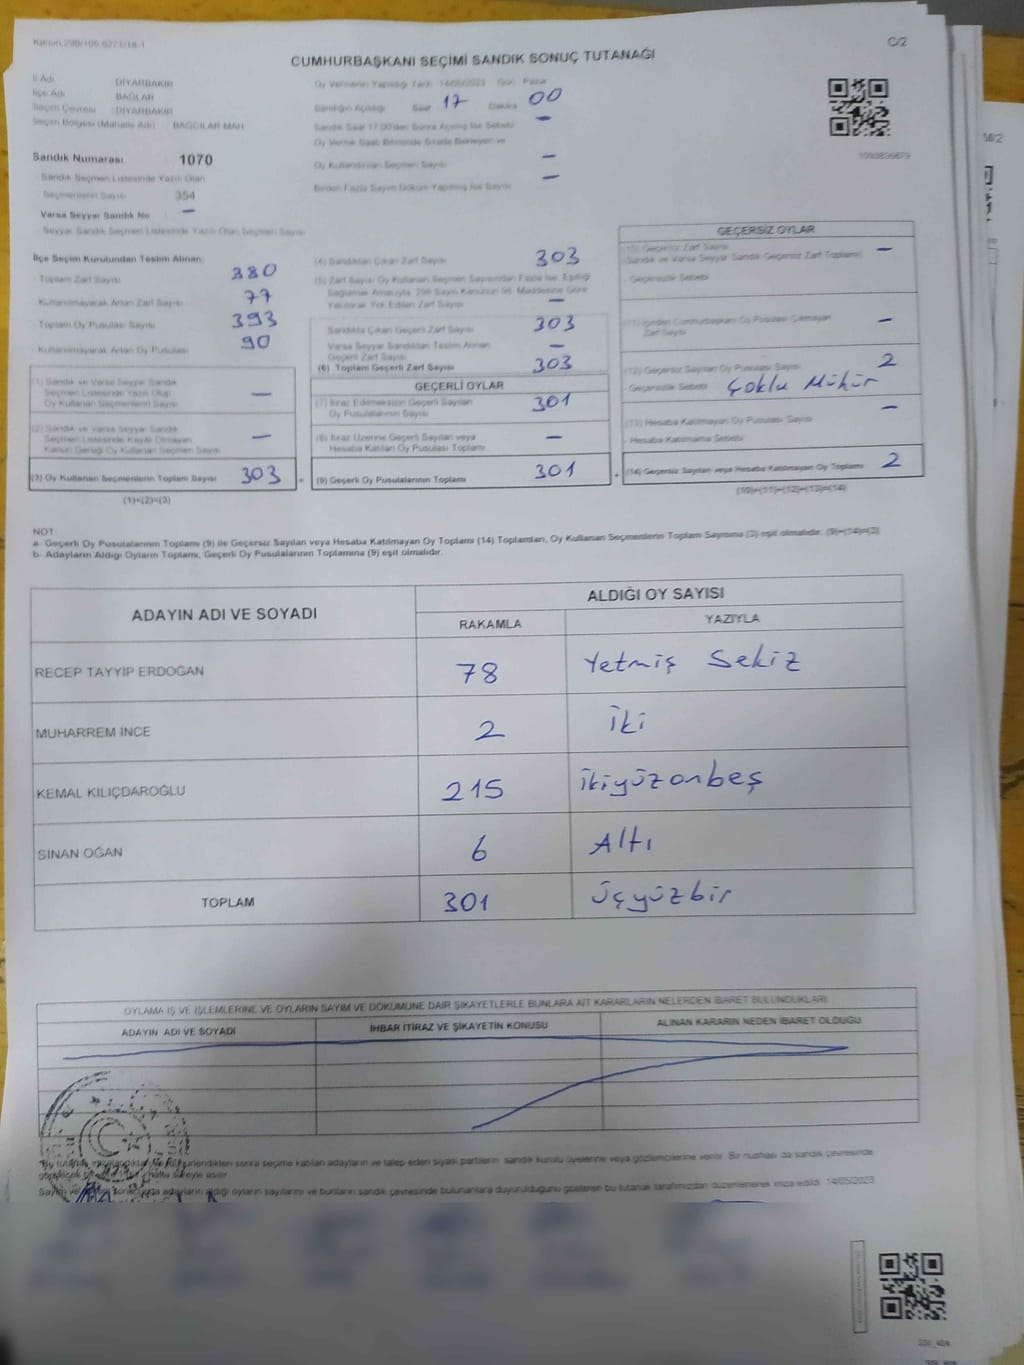 Kanun:298/105,6271/18-1
C/2
CUMHURBAŞKANI SEÇİMİ SANDIK SONUÇ TUTANAĞI
İl Adı DİYARBAKIR
İlçe Adı BAĞLAR
Seçim Çevresi : DİYARBAKIR
Seçim Bölgesi (Mahalle Adı) BAĞCILAR MAH
Sandık Numarası 1070
Sandık Seçmen Listesinde Yazılı Olan
Seçmenlerin Sayısı 354
Varsa Seyyar Sandık No –
Seyyar Sandık Seçmen Listesinde Yazılı Olan Seçmen Sayısı
Oy Vermenin Yapıldığı Tarih 14/05/2023 Gün Pazar
Sandığın Açıldığı Saat 17 Dakika 00
Sandık Saat 17.00'den Sonra Açılmış İse Sebebi –
Oy Verme Saati Bitiminde Sırada Bekleyen ve
Oy Kullandırılan Seçmen Sayısı –
Birden Fazla Sayım Döküm Yapılmış İse Sayısı –
İlçe Seçim Kurulundan Teslim Alınan:
Toplam Zarf Sayısı 380
Kullanılmayarak Artan Zarf Sayısı 77
Toplam Oy Pusulası Sayısı 393
Kullanılmayarak Artan Oy Pusulası 90
(1) Sandık ve Varsa Seyyar Sandık
Seçmen Listesinde Yazılı Olup
Oy Kullanan Seçmenlerin Sayısı –
(2) Sandık ve Varsa Seyyar Sandık
Seçmen Listesinde Kayıtlı Olmayan
Kanun Gereği Oy Kullanan Seçmen Sayısı –
(3) Oy Kullanan Seçmenlerin Toplam Sayısı 303
(1)+(2)=(3)
(4) Sandıktan Çıkan Zarf Sayısı 303
(5) Zarf Sayısı Oy Kullanan Seçmen Sayısından Fazla İse, Eşitliği
Sağlamak Amacıyla, 298 Sayılı Kanunun 98. Maddesine Göre
Yakılarak Yok Edilen Zarf Sayısı –
Sandıkta Çıkan Geçerli Zarf Sayısı 303
Varsa Seyyar Sandıktan Teslim Alınan
Geçerli Zarf Sayısı –
(6) Toplam Geçerli Zarf Sayısı 303
GEÇERLİ OYLAR
(7) İtiraz Edilmeksizin Geçerli Sayılan
Oy Pusulalarının Sayısı 301
(8) İtiraz Üzerine Geçerli Sayılan veya
Hesaba Katılan Oy Pusulası Toplamı –
(9) Geçerli Oy Pusulalarının Toplamı 301
GEÇERSİZ OYLAR
(10) Geçersiz Zarf Sayısı –
(Sandık ve Varsa Seyyar Sandık Geçersiz Zarf Toplamı)
- Geçersizlik Sebebi
(11) İçinden Cumhurbaşkanı Oy Pusulası Çıkmayan
Zarf Sayısı –
(12) Geçersiz Sayılan Oy Pusulası Sayısı 2
- Geçersizlik Sebebi Çoklu Mühür
(13) Hesaba Katılmayan Oy Pusulası Sayısı –
- Hesaba Katılmama Sebebi
(14) Geçersiz Sayılan veya Hesaba Katılmayan Oy Toplamı 2
(10)+(11)+(12)+(13)=(14)
NOT:
a- Geçerli Oy Pusulalarının Toplamı (9) ile Geçersiz Sayılan veya Hesaba Katılmayan Oy Toplamı (14) Toplamları, Oy Kullanan Seçmenlerin Toplam Sayısına (3) eşit olmalıdır. (9)+(14)=(3)
b- Adayların Aldığı Oyların Toplamı, Geçerli Oy Pusulalarının Toplamına (9) eşit olmalıdır.
ADAYIN ADI VE SOYADI
ALDIĞI OY SAYISI
RAKAMLA YAZIYLA
RECEP TAYYİP ERDOĞAN 78 Yetmiş Sekiz
MUHARREM İNCE 2 İki
KEMAL KILIÇDAROĞLU 215 İkiyüzonbeş
SİNAN OĞAN 6 Altı
TOPLAM 301 Üçyüzbir
OYLAMA İŞ VE İŞLEMLERİNE VE OYLARIN SAYIM VE DÖKÜMÜNE DAİR ŞİKAYETLERLE BUNLARA AİT KARARLARIN NELERDEN İBARET BULUNDUKLARI
ADAYIN ADI VE SOYADI İHBAR İTİRAZ VE ŞİKAYETİN KONUSU ALINAN KARARIN NEDEN İBARET OLDUĞU
sonra seçime katılan adayların ve talep eden siyasi partilerin sandık kurulu üyelerine veya gözlemcilerine verilir. Bir nüshası da sandık çevresinde
hafta süreyle asılır.
adayların aldığı oyların sayılarını ve bunların sandık çevresinde bulunanlara duyurulduğunu gösteren bu tutanak tarafımızdan düzenlenerek imza edildi. 14/05/2023